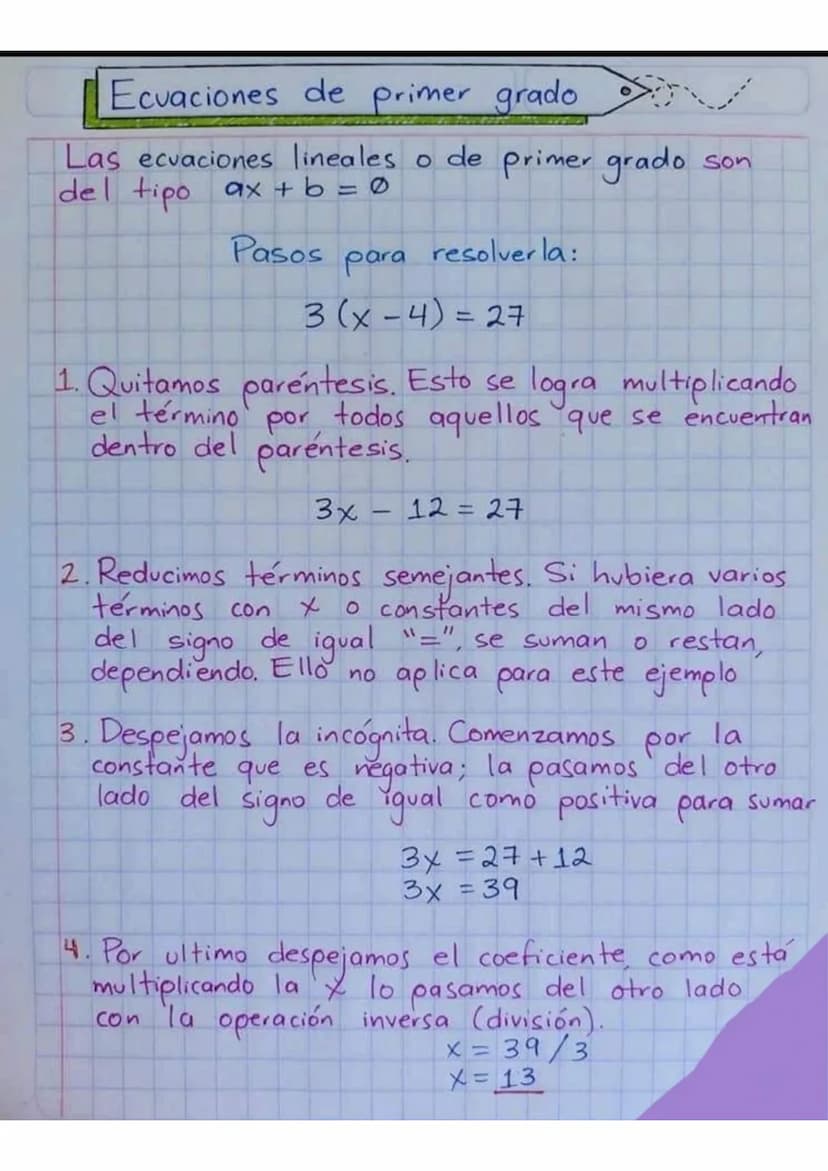 Ecuaciones de primer grado
Las ecuaciones lineales o de primer grado son
del tipo ax + b = 0
Pasos para resolverla:
3 (x - 4) = 27
1. Quitamos paréntesis. Esto se logra multiplicando
el término por todos aquellos que se encuentran
dentro del paréntesis.
3x - 12 = 27
2. Reducimos términos semejantes. Si hubiera varios
términos con x o constantes del mismo lado
del signo de igual "=", se suman o restan,
dependiendo. Ello no aplica para este ejemplo
3. Despejamos la incógnita. Comenzamos por la
constante que es negativa; la pasamos del otro
lado del signo de igual como positiva para sumar
3x = 27 + 12
3x = 39
4. Por ultimo despejamos el coeficiente, como está
multiplicando la x lo pasamos del otro lado
con la operación inversa (división).
x = 39 / 3
x = 13